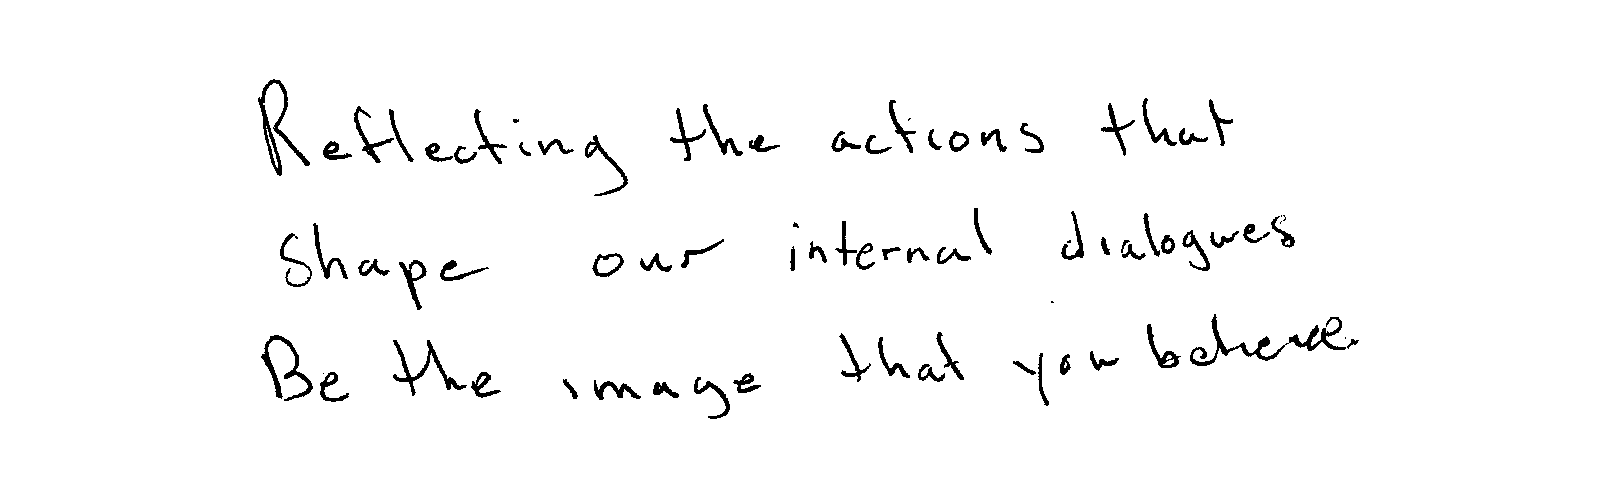 Reflecting the actions that
shape our internal dialogues
Be the image that you believe.